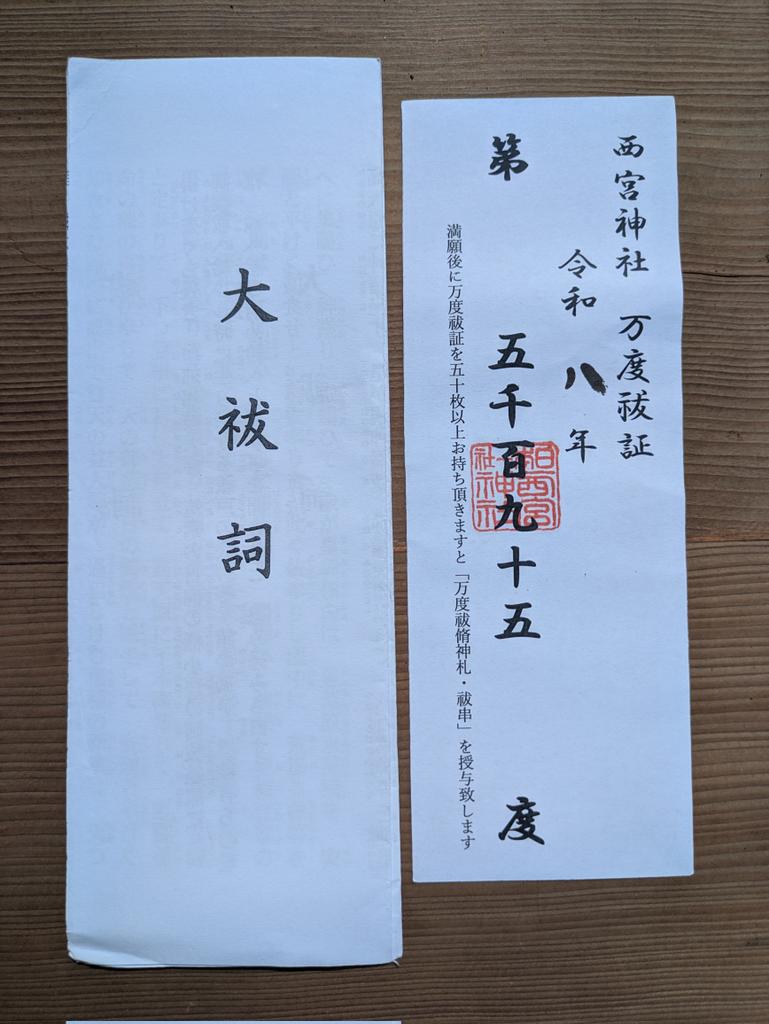 西宮神社 万度祓証
令和八年
第 五千百九十五 度
満願後に万度祓証を五十枚以上お持ち頂きますと「万度祓脩神札・祓串」を授与致します
大祓詞